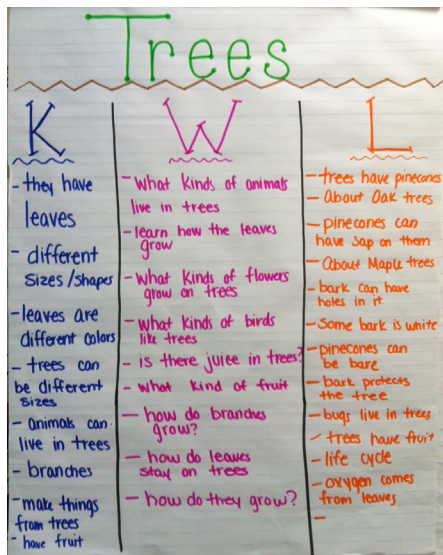 Trees
K
- they have
leaves
- different
sizes/shapes
- leaves are
different colors
- trees can
be different
sizes
- animals can
live in trees
- branches
- make things
from trees
- have fruit
W
- what kinds of animals
live in trees
- learn how the leaves
grow
- what kinds of flowers
grow on trees
- what kinds of birds
like trees
- is there juice in trees?
- what kind of fruit
- how do branches
grow?
- how do leaves
stay on trees
- how do they grow?
L
- trees have pinecones
- About Oak trees
- pinecones can
have sap on them
- About Maple trees
- bark can have
holes in it.
- some bark is white
- pinecones can
be bare
- bark protects
the tree
- bugs live in trees
- trees have fruit
- life cycle
- oxygen comes
from leaves
-